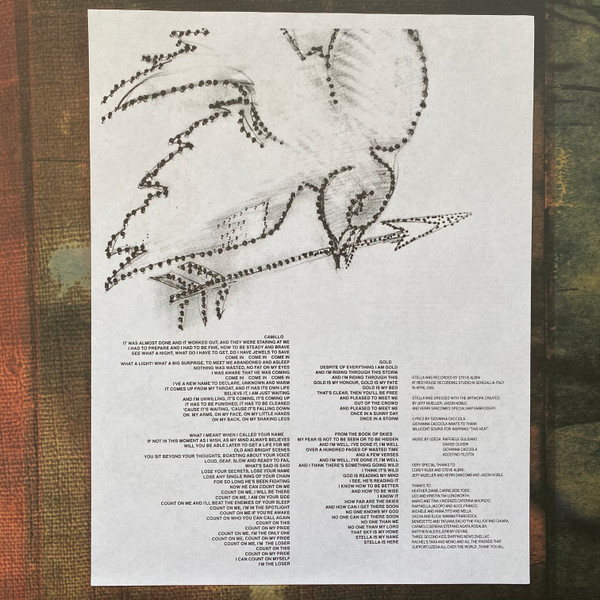 CAMILLO
IT WAS ALMOST DONE AND IT WORKED OUT, AND THEY WERE STARING AT ME
I HAD TO PREPARE AND I HAD TO BE FINE, HOW TO BE STEADY AND BRAVE
SEE WHAT A NIGHT, WHAT DO I HAVE TO GET, DO I HAVE JEWELS TO SAVE
COME IN COME IN COME IN
WHAT A LIGHT! WHAT A BIG SURPRISE, TO MEET ME ABANDONED AND ASLEEP
NOTHING WAS WASTED, NO FAT ON MY EYES
I WAS AWARE THAT HE WAS COMING
COME IN COME IN COME IN
I'VE A NEW NAME TO DECLARE, UNKNOWN AND WARM
IT COMES UP FROM MY THROAT, AND IT HAS ITS OWN LIFE
BELIEVE IT, I AM JUST WAITING
AND I'M UNVEILING, IT'S COMING, IT'S COMING UP
IT HAS TO BE PUNISHED, IT HAS TO BE CLEANED
'CAUSE IT'S WAITING, 'CAUSE IT'S FALLING DOWN
ON MY ARMS, ON MY FACE, ON MY LITTLE HANDS
ON MY BACK, ON MY SHAKING LEGS
WHAT I MEANT WHEN I CALLED YOUR NAME
IF NOT IN THIS MOMENT AS I WISH, AS MY MIND ALWAYS BELIEVES
WILL YOU BE ABLE LATER TO GET A LIFE FOR ME
OLD AND BRIGHT SCENES
YOU SIT BEYOND YOUR THOUGHTS, BOASTING ABOUT YOUR VOICE
LOUD, DEAF, SLOW AND READY TO FAIL
WHAT'S SAID IS SAID
LOSE YOUR SECRETS, LOSE YOUR NAME
LOSE ANY SINGLE RING OF YOUR CHAIN
FOR SO LONG HE'S BEEN FIGHTING
NOW HE CAN COUNT ON ME
COUNT ON ME, I WILL BE THERE
COUNT ON ME, I AM ON YOUR SIDE
COUNT ON ME AND I'LL BEAT THE ENEMIES OF YOUR SLEEP
COUNT ON ME, I'M IN THE SPOTLIGHT
COUNT ON ME IF YOU'RE AWAKE
COUNT ON WHO YOU CAN CALL AGAIN
COUNT ON THIS
COUNT ON MY PRIDE
COUNT ON ME, I'M THE ONLY ONE
COUNT ON ME, COUNT ON MY PRIDE
COUNT ON ME, I'M THE LOSER
COUNT ON THIS
COUNT ON MY PRIDE
I CAN COUNT ON MYSELF
I'M THE LOSER
GOLD
DESPITE OF EVERYTHING I AM GOLD
AND I'M RIDING THROUGH THIS STORM
AND I'M RIDING THROUGH THIS
GOLD IS MY HONOUR, GOLD IS MY FATE
GOLD IS MY BED
THAT'S CLEAR, THEN YOU'LL BE FREE
AND PLEASED TO MEET ME
OUT OF THE CROWD
AND PLEASED TO MEET ME
ONCE IN A SUNNY DAY
ONCE IN A STORM
FROM THE BOOK OF SKIES
MY FEAR IS NOT TO BE SEEN OR TO BE HIDDEN
AND I'M WELL, I'VE DONE IT, I'M WELL
OVER A HUNDRED PAGES OF WASTED TIME
AND A FEW VERSES
AND I'M WELL, I'VE DONE IT, I'M WELL
AND I THINK THERE'S SOMETHING GOING WILD
I THINK IT'S WILD
GOD IS READING MY MIND
I SEE, HE'S READING IT
I KNOW HOW TO BE BETTER
AND HOW TO BE WISE
I KNOW IT
HOW FAR ARE THE SKIES
AND HOW CAN I GET THERE SOON
NO ONE KNOWS MY GOLD SKIES
NO ONE CAN GET THERE SOON
NO ONE THAN ME
NO ONE THAN MY LORD
THAT SKY IS MY HOME
STELLA IS MY NAME
STELLA IS HERE
STELLA WAS RECORDED BY STEVE ALBINI
AT RED HOUSE RECORDING STUDIO IN SENIGALLIA ITALY
IN APRIL 2005.
STELLA WAS DRESSED WITH THE ARTWORK CREATED
BY JEFF MUELLER, JASON NOBLE,
LYRICS BY GIOVANNA CACCIOLA
GIOVANNA CACCIOLA WANTS TO THANK
MUSIC BY UZEDA: RAFFAELE GULISANO
DAVIDE OLIVERI
GIOVANNA CACCIOLA
AGOSTINO TILOTTA
VERY SPECIAL THANKS TO:
COREY RUSK AND STEVE ALBINI.
THANKS TO: